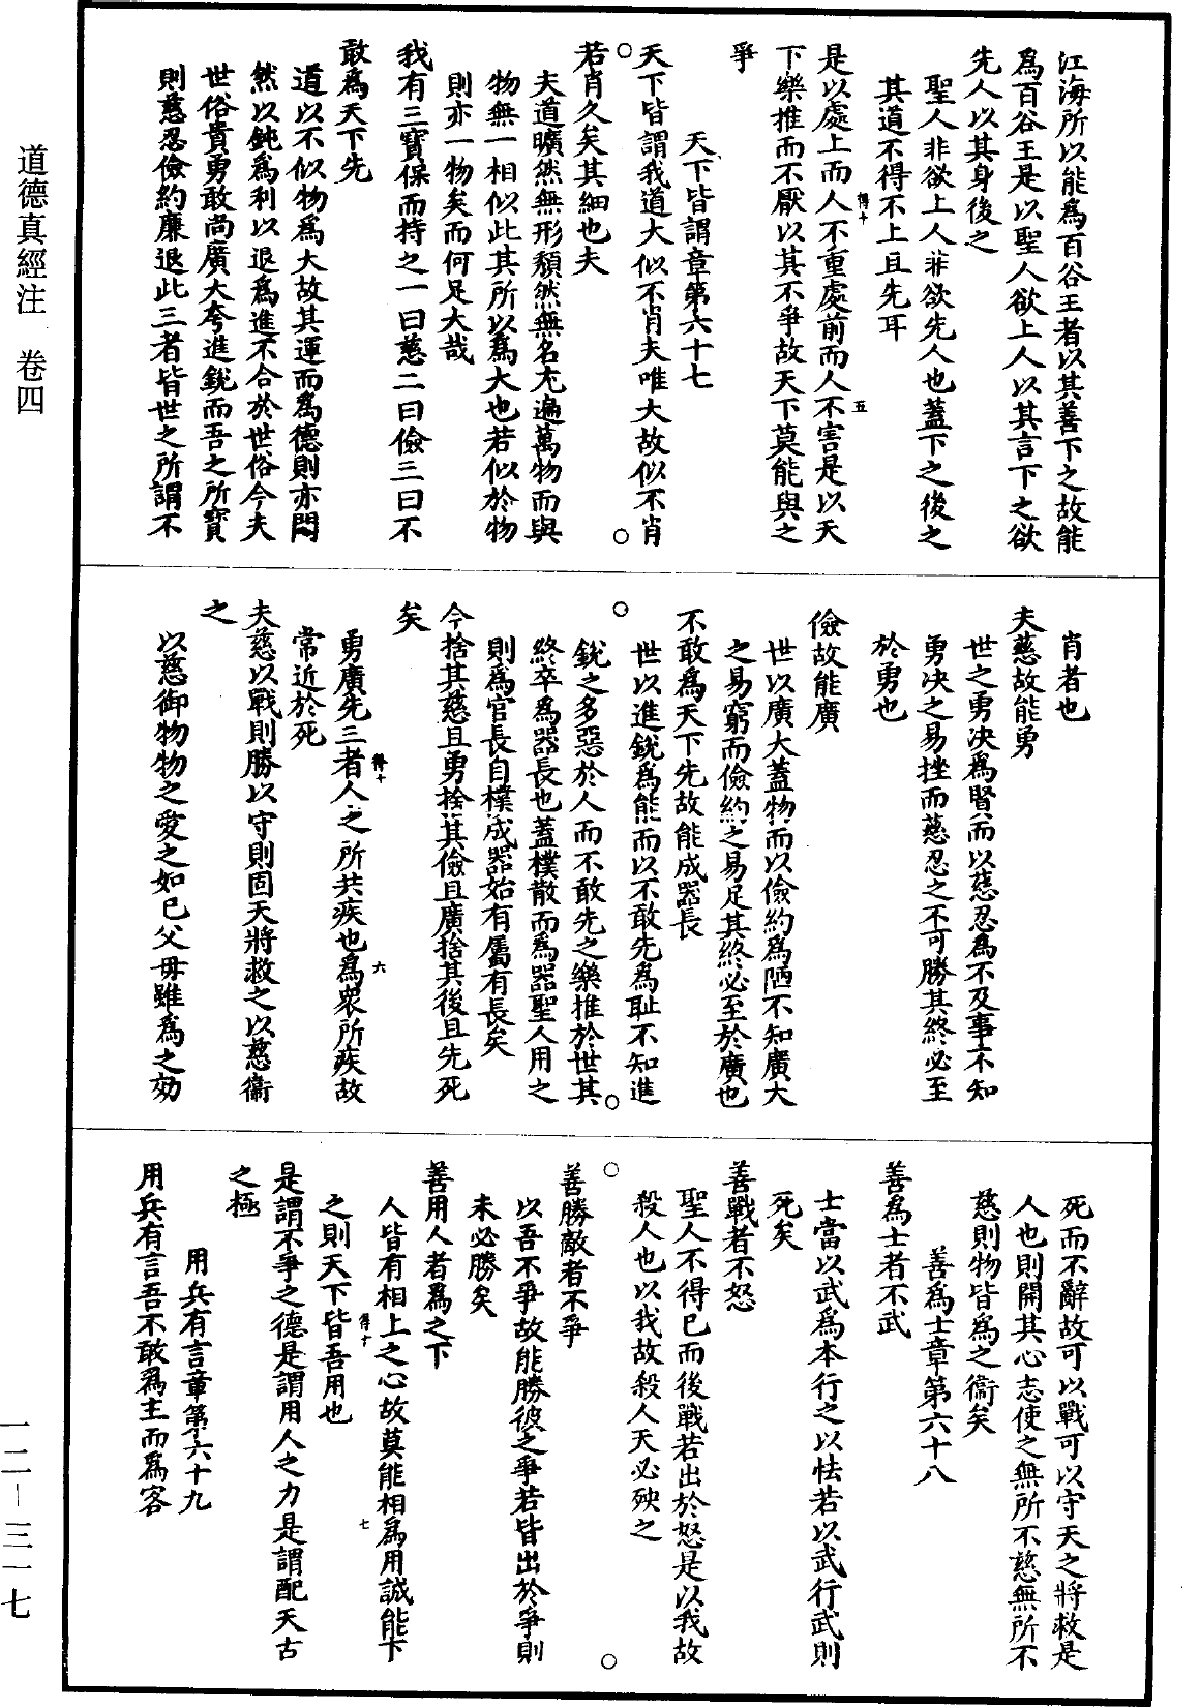 江海所以能為百谷王者以其善下之故能
為百谷王是以聖人欲上人以其言下之欲
先人以其身後之
聖人非欲上人非欲先人也蓋下之後之
其道不得不上且先耳
是以處上而人不重處前而人不害是以天
得十 五
下樂推而不厭以其不爭故天下莫能與之
爭
天下皆謂章第六十七
天下皆謂我道大似不肖夫唯大故似不肖
若肖久矣其細也夫
夫道曠然無形頹然無名充遍萬物而與
物無一相似此其所以為大也若似於物
則亦一物矣而何足大哉
我有三寶保而持之一曰慈二曰儉三曰不
敢為天下先
道以不似物為大故其運而為德則亦悶
然以鈍為利以退為進不合於世俗今夫
世俗貴勇敢尚廣大夸進銳而吾之所寶
則慈忍儉約廉退此三者皆世之所謂不
肖者也
夫慈故能勇
世之勇決為賢而以慈忍為不及事不知
勇決之易挫而慈忍之不可勝其終必至
於勇也
儉故能廣
世以廣大蓋物而以儉約為陋不知廣大
之易窮而儉約之易足其終必至於廣也
不敢為天下先故能成器長
世以進銳為能而以不敢先為恥不知進
銳之多惡於人而不敢先之樂推於世其
終卒為器長也蓋樸散而為器聖人用之
則為官長自樸成器始有屬有長矣
今捨其慈且勇捨其儉且廣捨其後且先死
矣
勇廣先三者人之所共疾也為衆所疾故
得十 六
常近於死
夫慈以戰則勝以守則固天將救之以慈衞
之
以慈御物物之愛之如已父母雖為之効
死而不辭故可以戰可以守天之將救是
人也則開其心志使之無所不慈無所不
慈則物皆為之衞矣
善為士章第六十八
善為士者不武
士當以武為本行之以怯若以武行武則
死矣
善戰者不怒
聖人不得已而後戰若出於怒是以我故
殺人也以我故殺人天必殃之
善勝敵者不爭
以吾不爭故能勝彼之爭若皆出於爭則
未必勝矣
善用人者為之下
人皆有相上之心故莫能相為用誠能下
得十 七
之則天下皆吾用也
是謂不爭之德是謂用人之力是謂配天古
之極
用兵有言章第六十九
用兵有言吾不敢為主而為客
道德真經注 卷四
一二—三一七